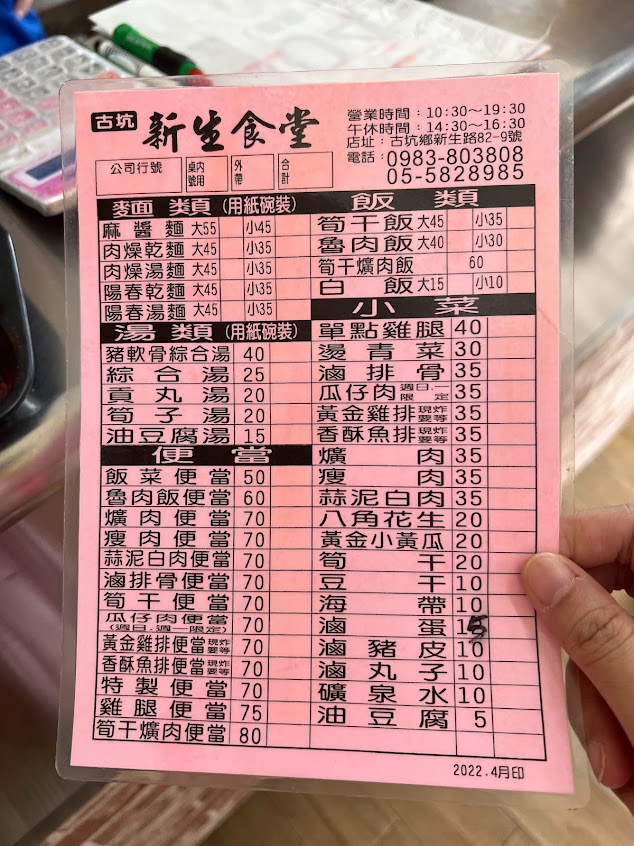 古坑 新生食堂
營業時間：10:30～19:30
午休時間：14:30～16:30
店址：古坑鄉新生路82-9號
電話：0983-803808
05-5828985
公司行號 桌內號用 外帶 合計
麵類(用紙碗裝)
麻醬麵 大55 小45
肉燥乾麵 大45 小35
肉燥湯麵 大45 小35
陽春乾麵 大45 小35
陽春湯麵 大45 小35
湯類(用紙碗裝)
豬軟骨綜合湯 40
綜合湯 25
貢丸湯 20
筍子湯 20
油豆腐湯 15
便當
飯菜便當 50
魯肉飯便當 60
爌肉便當 70
瘦肉便當 70
蒜泥白肉便當 70
滷排骨便當 70
筍干便當 70
瓜仔肉便當(週日.週一限定) 70
黃金雞排便當 現炸要等 70
香酥魚排便當 現炸要等 70
特製便當 70
雞腿便當 75
筍干爌肉便當 80
飯類
筍干飯 大45 小35
魯肉飯 大40 小30
筍干爌肉飯 60
白飯 大15 小10
小菜
單點雞腿 40
燙青菜 30
滷排骨 35
瓜仔肉 週日.一限定 35
黃金雞排 現炸要等 35
香酥魚排 現炸要等 35
爌肉 35
瘦肉 35
蒜泥白肉 35
八角花生 20
黃金小黃瓜 20
筍干 20
豆干 10
海帶 10
滷蛋 15
滷豬皮 10
滷丸子 10
礦泉水 10
油豆腐 5
2022.4月印